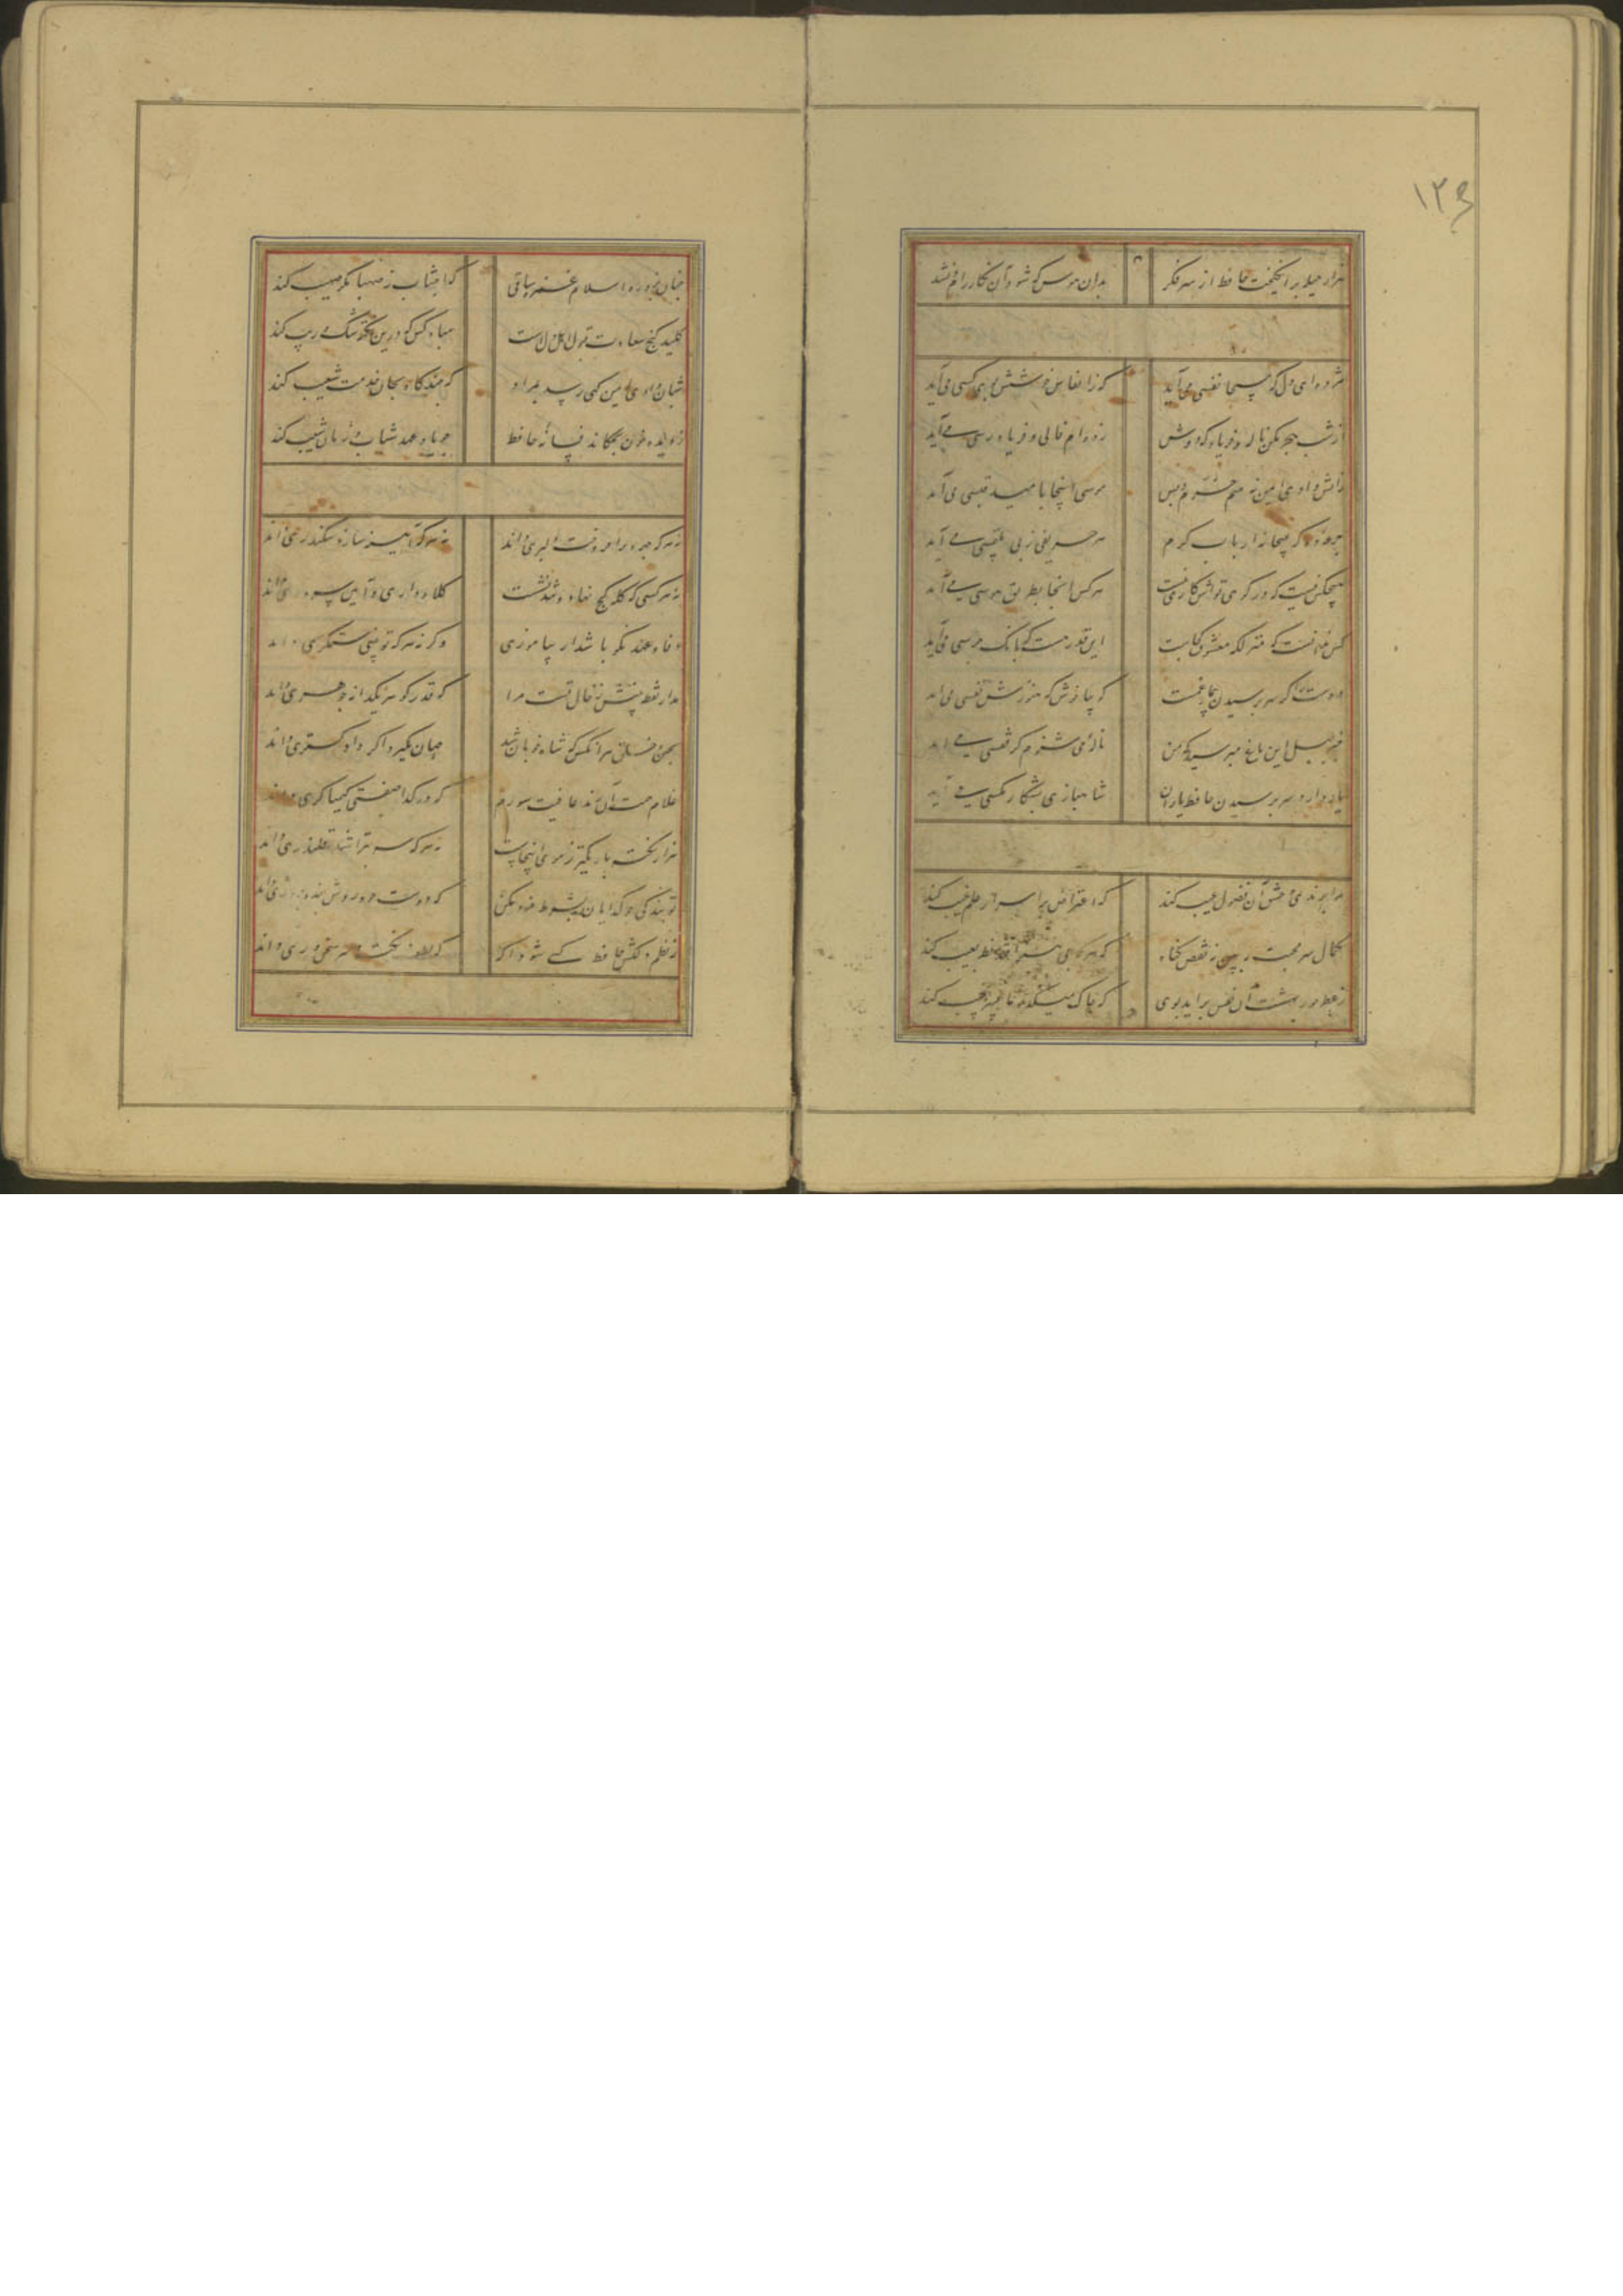 ۱۲۳
هزار حیله برانگیخت حافظ از سر فکر بدان هوس که شود آن نگار رام و نشد
مژده ای دل که مسیحا نفسی می آید که ز انفاس خوشش بوی کسی می آید
از شب هجر مکن ناله و فریاد که دوش زده ام فالی و فریاد رسی می آید
زاتش وادی ایمن نه منم خرم و بس موسی اینجا بامید قبسی می آید
جرعه ده که میخانه ارباب کرم هر حریفی ز پی ملتمسی می آید
هیچکس نیست که در کوی تواش کاری نیست هر کس اینجا بطریق هوسی می آید
کس ندانست که منزلگه معشوق کجاست این قدر هست که بانک جرسی می آید
دوست را گر سر پرسیدن بیمار غمست گو بیا خوش که هنوزش نفسی می آید
خبر بلبل این باغ مپرسید که من ناله می شنوم کز قفسی می آید
یار دارد سر پرسیدن حافظ یاران شاهبازی بشکار مگسی می آید
مرا برندی و عشق آن فضول عیب کند که اعتراض بر اسرار علم غیب کند
کمال سر محبت ببین نه نقص گناه که هر که بی هنر افتد نظر بعیب کند
ز عطر حور بهشت آن نفس براید بوی که خاک میکده ما عبیر جیب کند
چنان بزد ره اسلام غمزه ساقی که اجتناب ز صهبا مگر صهیب کند
کلید گنج سعادت قبول اهل دلست مباد کس که درین نکته شک و ریب کند
شبان وادی ایمن گهی رسد بمراد که چند گاه بجان خدمت شعیب کند
ز دیده خون بچکاند فسانه حافظ چو یاد عهد شباب و زمان شیب کند
نه هر که چهره برافروخت دلبری داند نه هر که آینه سازد سکندری داند
نه هر کسی که کله کج نهاد و تند نشست کلاه داری و آیین سروری داند
وفا و عهد نکو باشد ار بیاموزی وگرنه هر که تو بینی ستمگری داند
مدار نقطه بینش ز خال تست مرا که قدر گوهر یکدانه جوهری داند
بحسن هر آنکس که شاه خوبان شد جهان بگیرد اگر دادگستری داند
غلام همت آن رند عافیت سوزم که در گدا صفتی کیمیاگری داند
هزار نکته باریکتر ز موی اینجاست نه هر که سر بتراشد قلندری داند
تو بندگی چو گدایان بشرط مزد مکن که دوست خود روش بنده پروری داند
ز نظم دلکش حافظ کسی شود آگه که لطف نکته و سر سخنوری داند